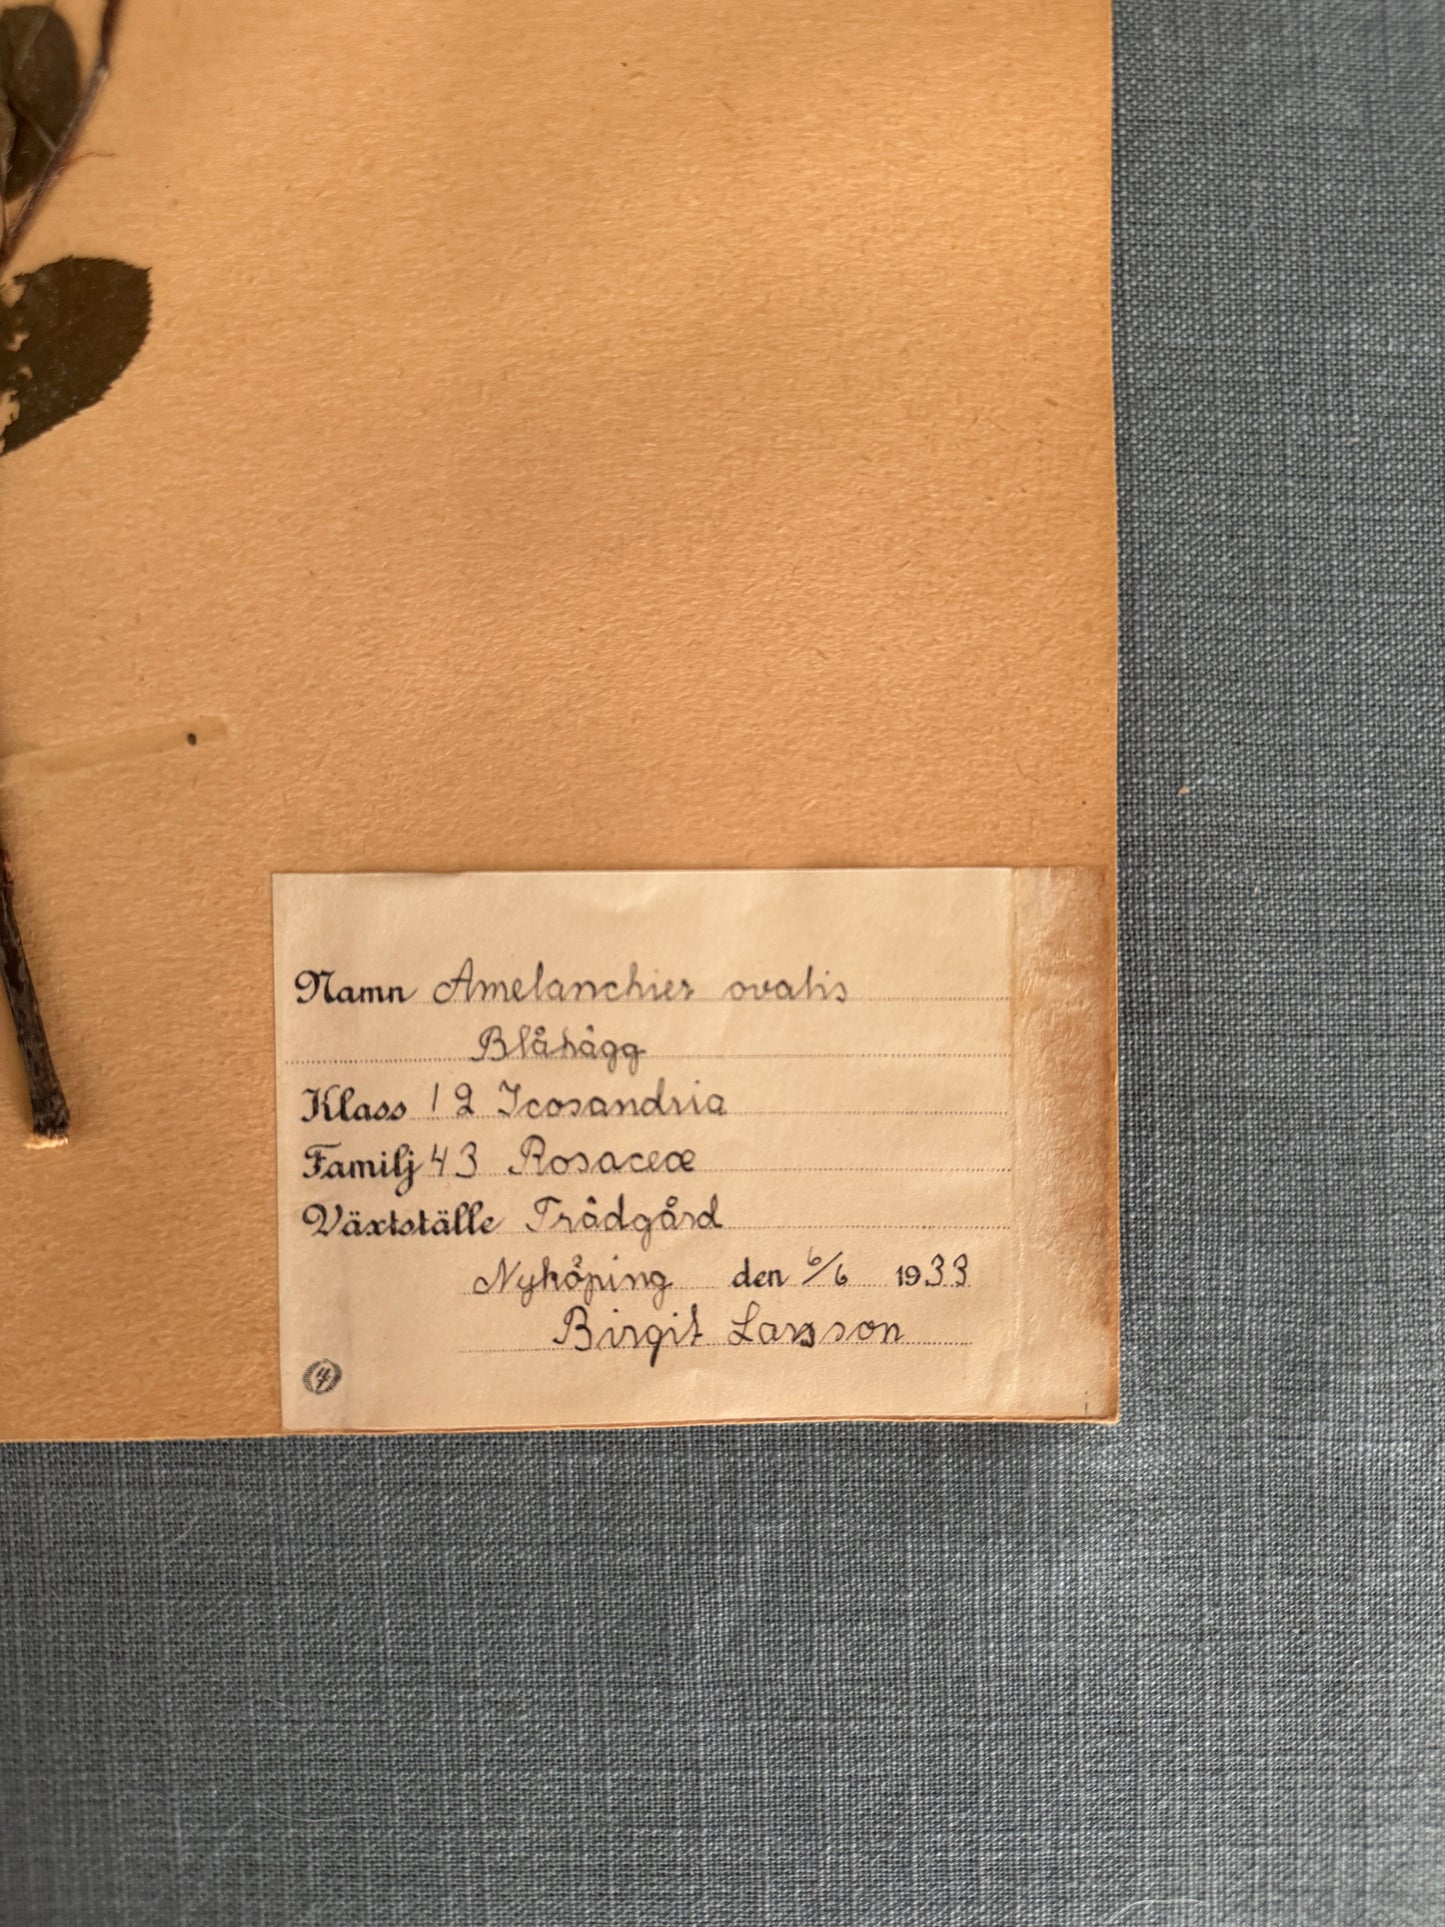 Namn Amelanchier ovalis
Blåhägg
Klass 12 Icosandria
Familj 43 Rosaceæ
Växtställe Trädgård
Nyköping den 6/6 1933
Birgit Larsson
4